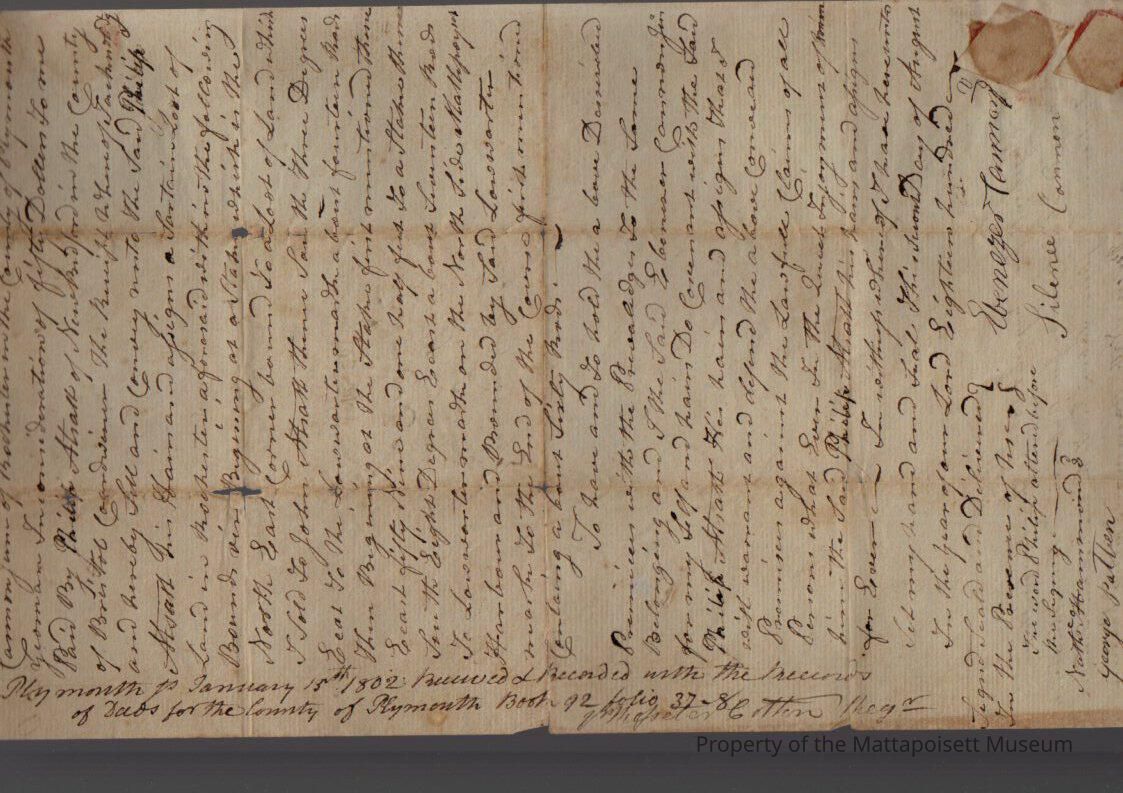 Cannon Jun of Rochester in the County of Plymouth
Yeoman In Consideration of fifty Dollars To me
Paid By Philip Atsatt of New bedford in the County
of Bristol Cordwiner The Receipt whereof I acknowledge
and hereby Sell and Convey unto the Said Philip
Atsatt his Hairs and assigns a Sartain Lot of
Land in Rochester aforesaid within the following
Bounds viz Begining at a Stake which is the
North East Corner bound To a Lot of Land which
I Sold To John Atsatt thence South Three Degrees
East To the Lowwatermarth about fourteen Rods
Then Begining at the Stake first mentioned thence
East fifty Nine and one half feet To a Stake thence
South Eight Degrees East about Seventeen Rods
To Lowwatermarth on the North Side Mattapoyst
Harbour and Bounded by Said Lowwarter
marke To the End of the Course first mentiond
Containg about Sixty Rods.
To have and To hold the above Demised
Premises with the Preveladges To the Same
Belonging and I the Said Ebenezer Cannon Jun
for my Self and hairs Do Covenant with the Said
Philip Atsatt His hairs and assigns that I
will warrant and defend the above Conveaed
Premises against the Lawfull Claims of all
Persons what Ever In the Quiet Injoyment of him
him the Said Philip Atsatt his hairs and assigns
for Ever — In witness whereof I have hereunto
Set my hand and Seal This Day of August
In the year of our Lord Eighteen hundred
Signd Seald and Delivered
In the Presence of us
Ebenezer Cannon Jr
The word Philip attend before
Silence Cannon
the signing
Nathll Hammond 3d
George Patten
Plymouth Ss January 15th 1802. Received & Recorded with the Records
of Deeds for the County of Plymouth Book 92 folio 37-8
Cotton Regr
Property of the Mattapoisett Museum